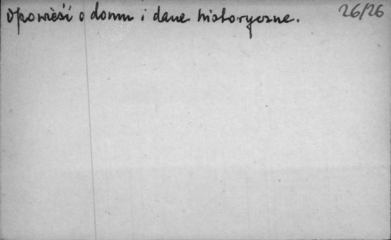 opowieść o domu i dane historyczne.
26/26